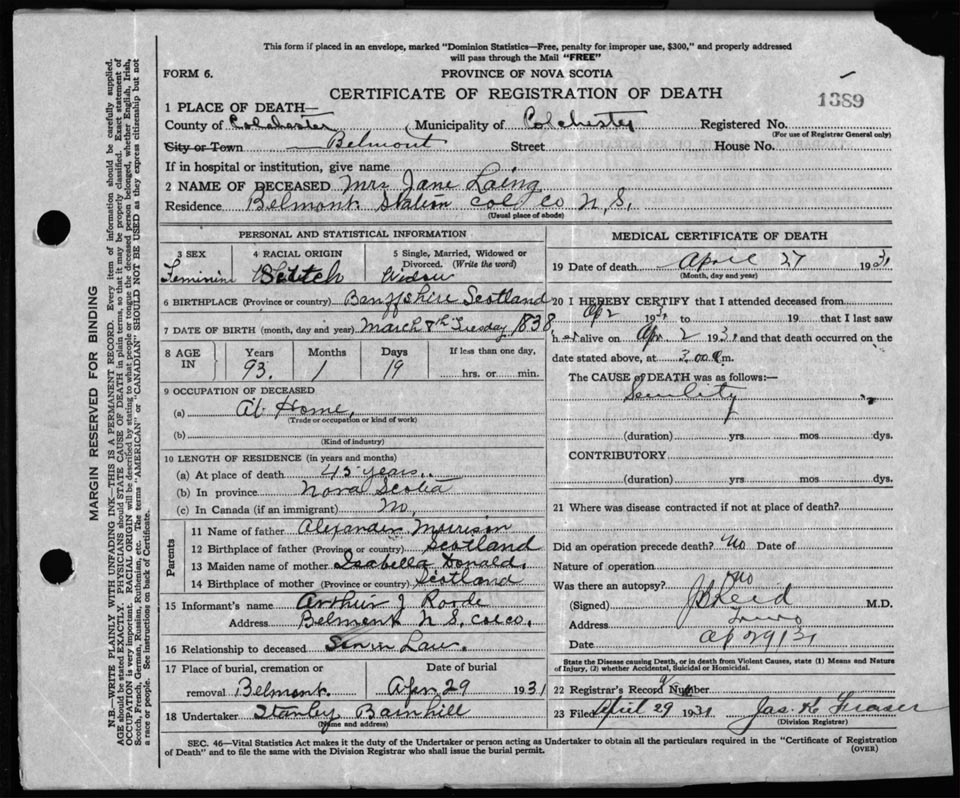 This form if placed in an envelope, marked "Dominion Statistics—Free, penalty for improper use, $300," and properly addressed
will pass through the Mail "FREE"
FORM 6.
PROVINCE OF NOVA SCOTIA
CERTIFICATE OF REGISTRATION OF DEATH
1389
1 PLACE OF DEATH—
County of Colchester Municipality of Colchester Registered No.
(For use of Registrar General only)
City or Town Belmont Street House No.
If in hospital or institution, give name
2 NAME OF DECEASED Mrs Jane Laing
Residence Belmont Station Col Co N.S.
(Usual place of abode)
PERSONAL AND STATISTICAL INFORMATION
3 SEX
Feminine
4 RACIAL ORIGIN
Scotch
5 Single, Married, Widowed or
Divorced. (Write the word)
Widow
6 BIRTHPLACE (Province or country) Banffshire Scotland
7 DATE OF BIRTH (month, day and year) March 8th Tuesday 1838
8 AGE
IN
Years
93.
Months
1
Days
19
If less than one day,
hrs. or min.
9 OCCUPATION OF DECEASED
(a) At Home,
(Trade or occupation or kind of work)
(b)
(Kind of industry)
10 LENGTH OF RESIDENCE (in years and months)
(a) At place of death 45 years.
(b) In province Nova Scotia
(c) In Canada (if an immigrant) no,
Parents
11 Name of father Alexander Morrison
12 Birthplace of father (Province or country) Scotland
13 Maiden name of mother Isabella Donald.
14 Birthplace of mother (Province or country) Scotland
15 Informant's name Arthur J
Address Belmont N S. Col co.
16 Relationship to deceased Son in Law.
17 Place of burial, cremation or
removal Belmont.
Date of burial
Apr 29 1931
18 Undertaker Stanley Barnhill
(Name and address)
MEDICAL CERTIFICATE OF DEATH
19 Date of death April 27 1931
(Month, day and year)
20 I HEREBY CERTIFY that I attended deceased from
Ap 2 1931 to 19 that I last saw
her alive on Apr 2 1931 and that death occurred on the
date stated above, at 3.00 m.
The CAUSE of DEATH was as follows:—
Senility
(duration) yrs mos dys.
CONTRIBUTORY
(duration) yrs mos dys.
21 Where was disease contracted if not at place of death?
Did an operation precede death? No Date of
Nature of operation
Was there an autopsy? No
(Signed) Reid M.D.
Address Truro
Date Ap 29/31
State the Disease causing Death, or in death from Violent Causes, state (1) Means and Nature
of Injury, (2) whether Accidental, Suicidal or Homicidal.
22 Registrar's Record Number
23 Filed April 29 1931 Jas. Fraser
(Division Registrar)
SEC. 46—Vital Statistics Act makes it the duty of the Undertaker or person acting as Undertaker to obtain all the particulars required in the "Certificate of Registration
of Death" and to file the same with the Division Registrar who shall issue the burial permit.
(OVER)
MARGIN RESERVED FOR BINDING
N.B.—WRITE PLAINLY WITH UNFADING INK—THIS IS A PERMANENT RECORD. Every item of information should be carefully supplied.
AGE should be stated EXACTLY. PHYSICIANS should STATE CAUSE OF DEATH in plain terms, so that it may be properly classified. Exact statement of
OCCUPATION is very important. RACIAL ORIGIN will be described by stating to what people or tongue the deceased person belonged, whether English, Irish,
Scotch, French, German, Russian, Ruthenian, etc. The terms "AMERICAN" or "CANADIAN" SHOULD NOT BE USED as they express citizenship but not
a race or people. See instructions on back of Certificate.